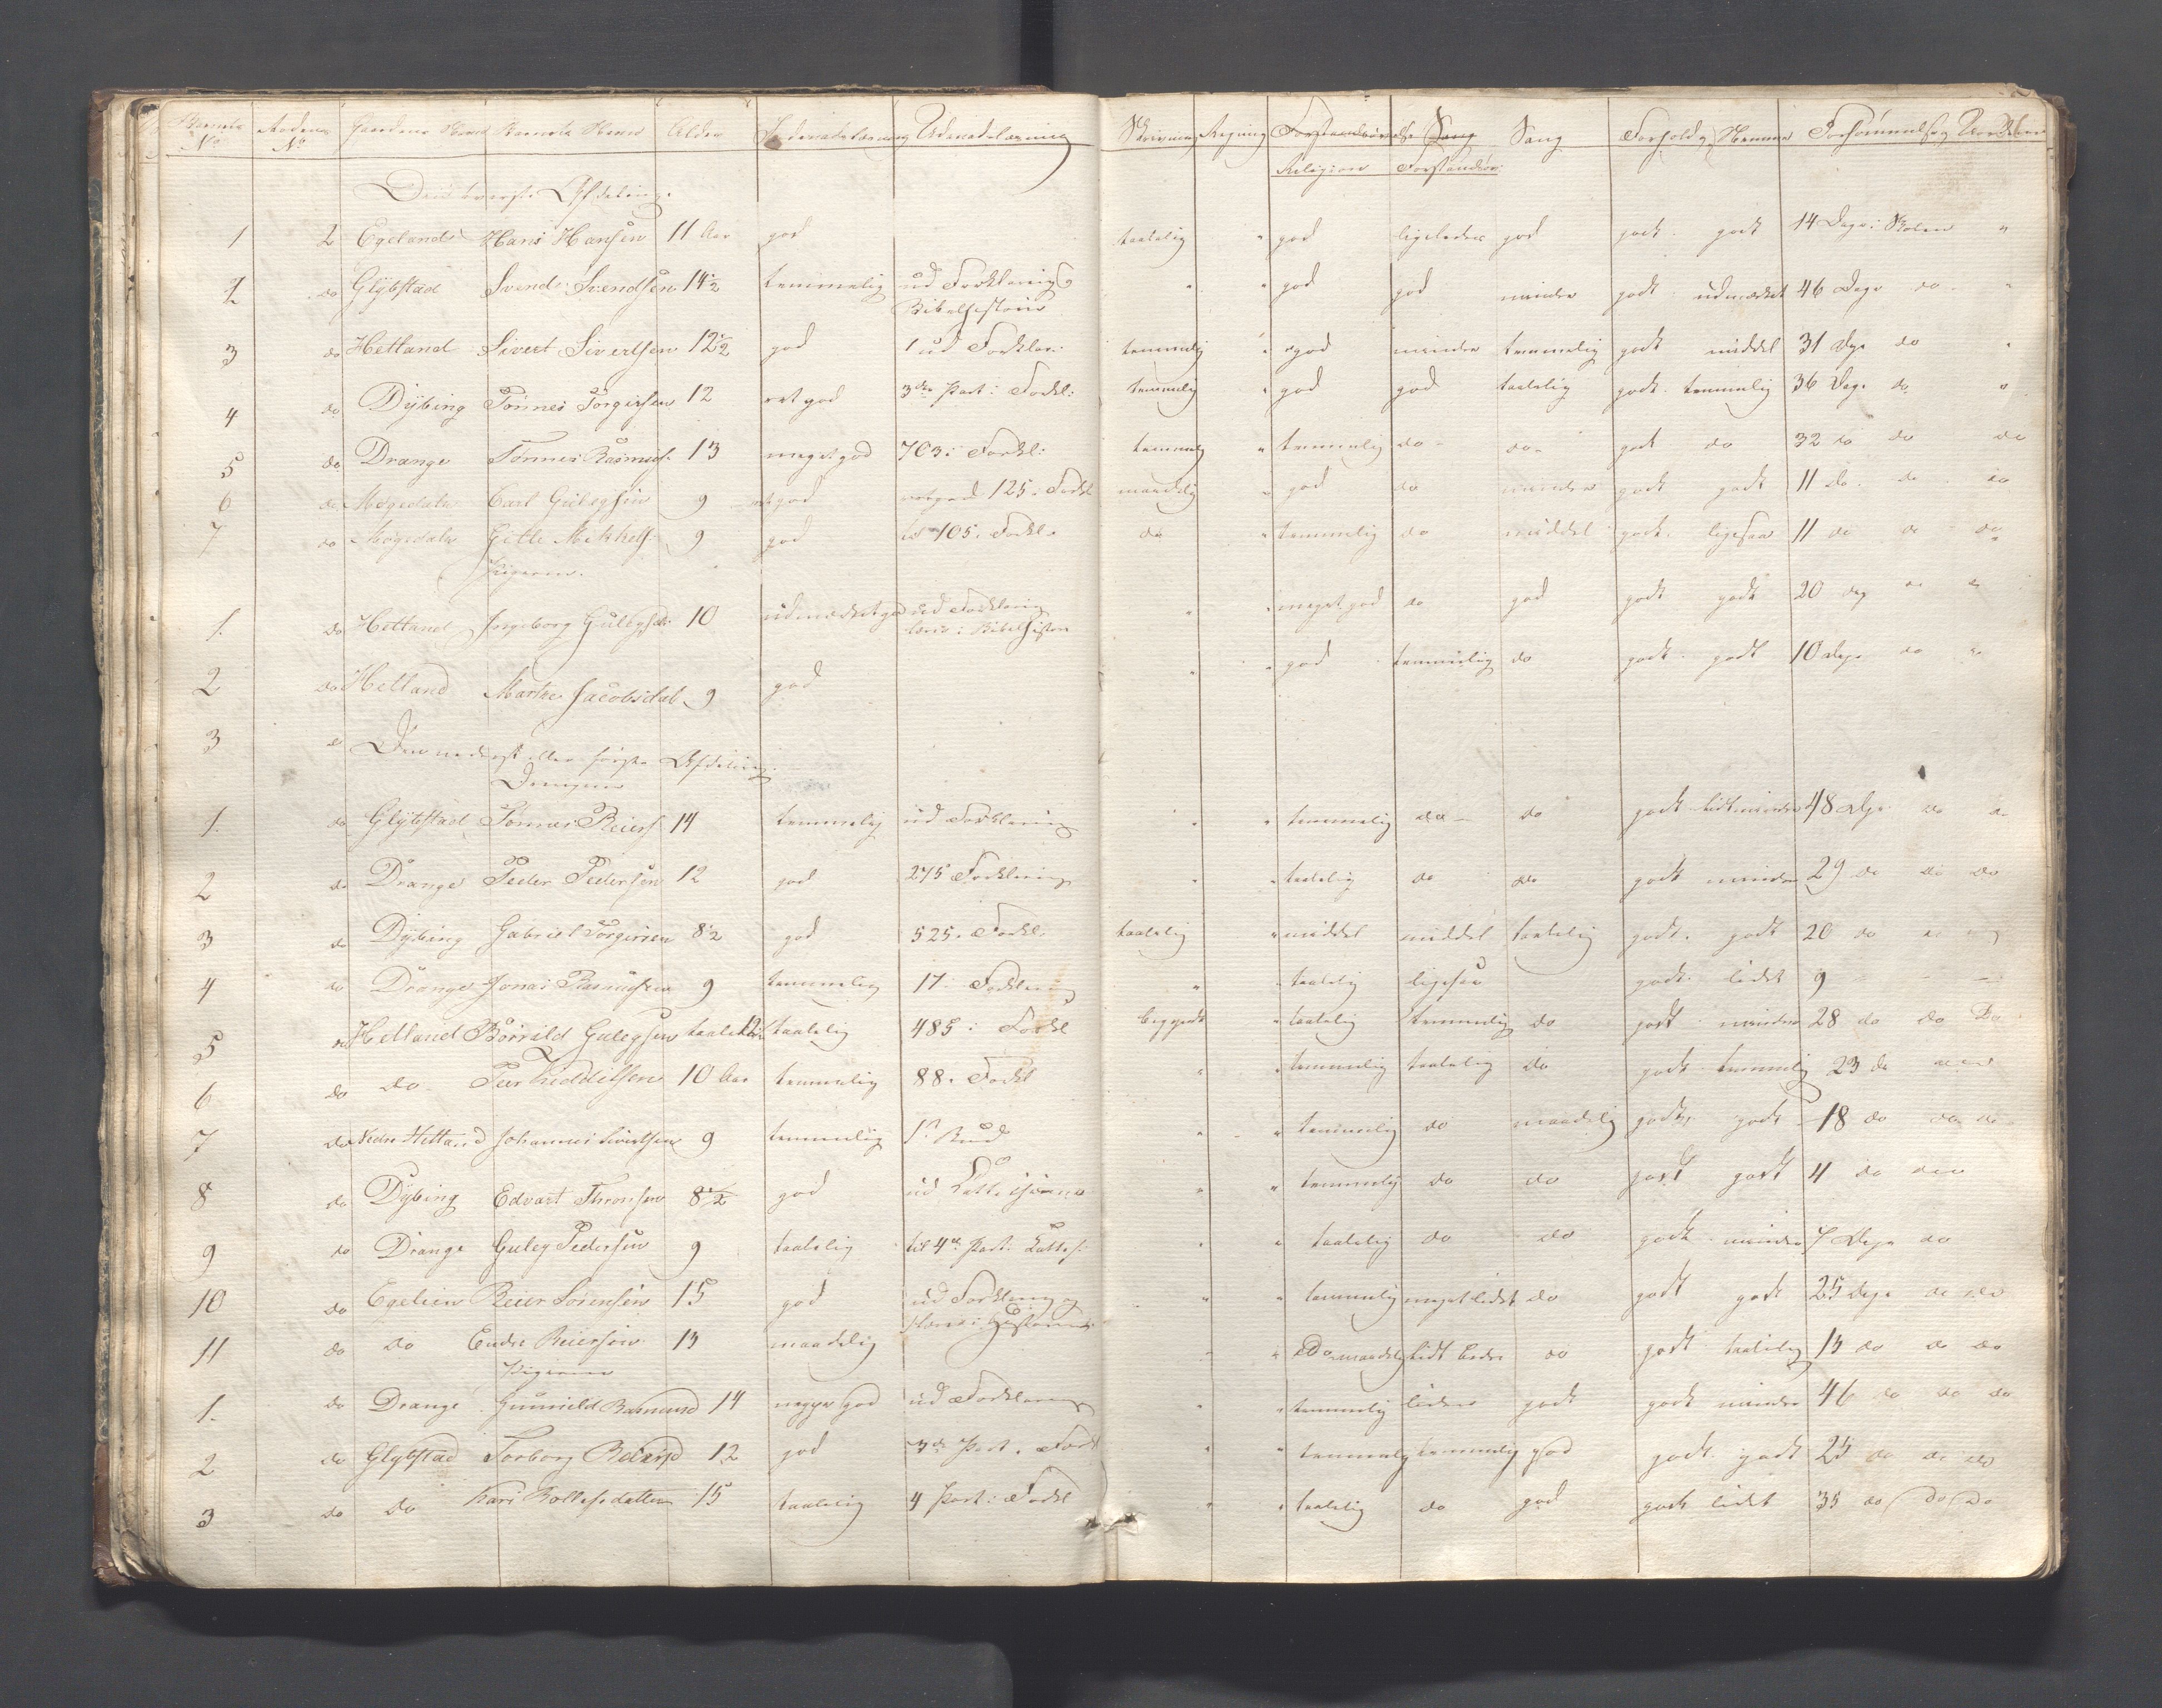 Barnets No Rodens No Gaardens Navn Barnets Navn Alder Indenadslæsning Udenadslæsning Skrivning Regning Religion Forstandsøv: Sang Forhold Nemme Forsømmelse
Den øverste Afdeling.
1 2 Egeland Hans Hansen 11 Aar god taalelig " god ligeledes god godt godt 14 Dage i Skolen "
2 do Glÿbstad Svend Svendsen 14½ temmelig ud Forklaring og " " god god mindre godt udmærket 46 Dage do "
Bibelhistorie
3 do Hetland Sivert Sivertsen 12½ god ud Forklar: temmelig " god mindre temmelig godt middel 31 Dge do "
4 do Dÿbing Tönnes Torgiersen 12 ret god 3die Part i Forkl: temmelig " god god taalelig godt temmelig 36 Dage do "
5 do Drange Tönnes Rasmus: 13 meget god 703 i Forkl: temmelig " temmelig do do godt do 32 do do do
6 do Mogedalen Carl Gulegsen 9 god 125 i Forkl maadelig " god do mindre godt godt 11 do do do
7 do Mogedalen Gitle Mikkels: 9 god 105 i Forkl. do " temmelig do middel godt ligesaa 11 do do do
Pigerne.
1. do Hetland Ingeborg Gulegsd: 10 udmærket god ud Forklaring " " meget god do god godt godt 20 dag do "
læser i Bibelhistorie
2 do Hetland Marthe Jacobsdat 9 god " " god temmelig do godt godt 10 Dage do "
3 do Den nederste eller første Afdeling.
Drengene
1. do Glÿbstad Tönnes Reiers 14 temmelig ud Forklaring " " temmelig do do godt lidt mindre 48 Dge do do
2 do Drange Peder Pedersen 12 god 275 Forklaring " " taalelig do do godt mindre 29 do do do
3 do Dÿbing Gabriel Torgiersen 8½ god 525 i Forkl. taalelig " middel middel taalelig godt godt 20 do
4 do Drange Jonas Rasmussen 9 temmelig 17 i Forklaring " " taalelig ligesaa godt lidet 9 - -
5 do Hetland Gulegsen 12 taalelig 485 i Forkl begyndt " taalelig temmelig do godt mindre 28 do do Do
6 do do Peer 10 Aar temmelig 88 i Forkl " " temmelig taalelig do godt temmelig 23 do
7 do Hetland Johannes Sivertsen 9 temmelig " " temmelig do maadelig godt godt 18 do do do
8 do Dÿbing Edvart Thronsen 8½ god ud " " temmelig do do godt godt 4 do
9 do Drange Guleg Pedersen 9 taalelig til 4de Part i " " taalelig do do godt mindre 7 Dage do
10 do Egelien Reier Sörensen 15 god ud Forklaring og " " temmelig meget lidet do godt godt 25 Dage do do
11 do do Endre Reiersen 13 maadelig " maadelig lidt bedre do godt taalelig 13 do do do
Pigerne
1. do Drange Gunnild Rasmusd 14 meget god ud Forklaring " " temmelig godt godt mindre 46 do do do
2 do Glÿbstad Torborg Reiersd 12 god 3die Part i Forkl " " temmelig temmelig god godt godt 25 do do do
3 do do Kari 15 taalelig 4 Part i Forkl " " taalelig do god godt lidet 35 do do do